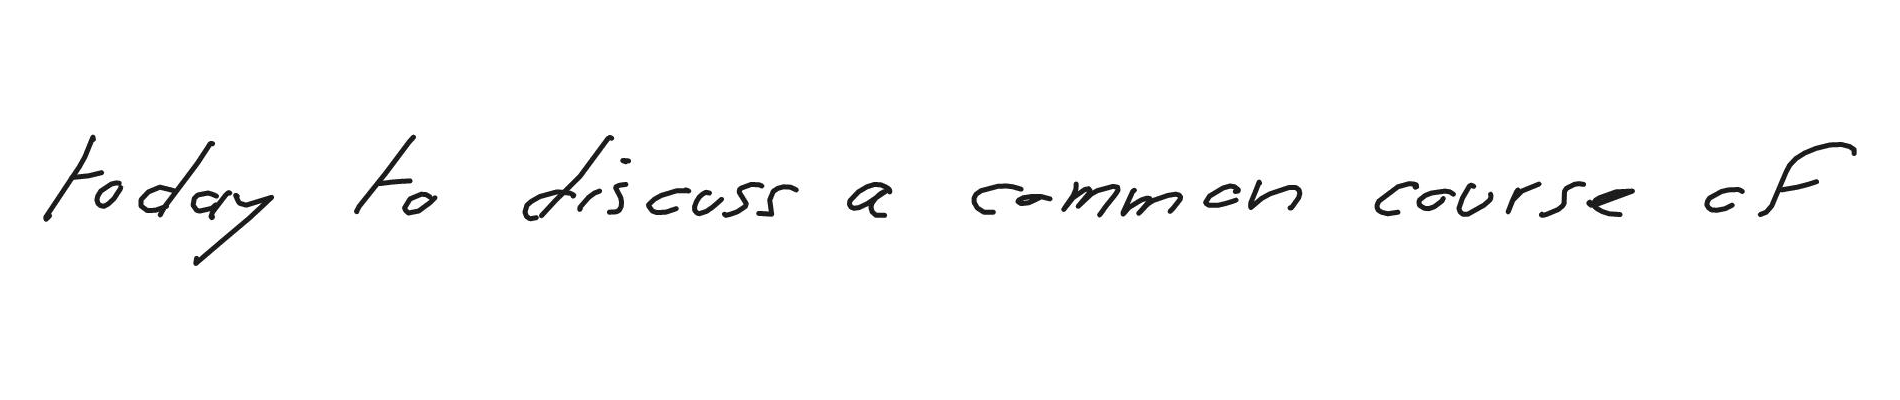 today to discuss a common course of